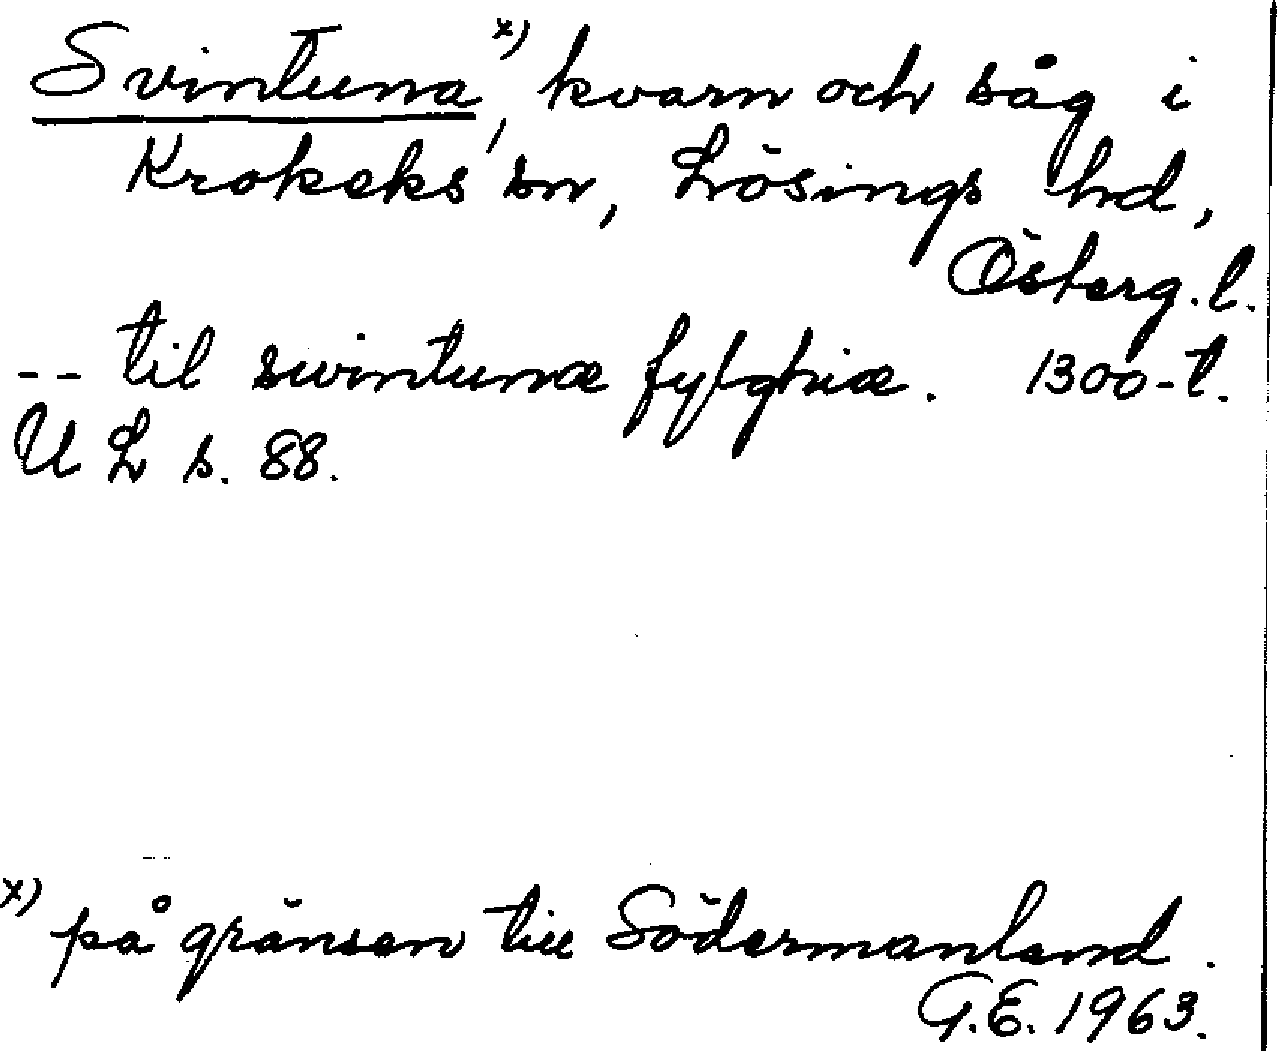 Svintuna x), kvarn och såg i
Krokeks sn, Lösings hd,
Österg.l.
-- til swintunæ fylghiæ. 1300-t.
UL s. 88.
x) på gränsen till Södermanland.
G.E. 1963.